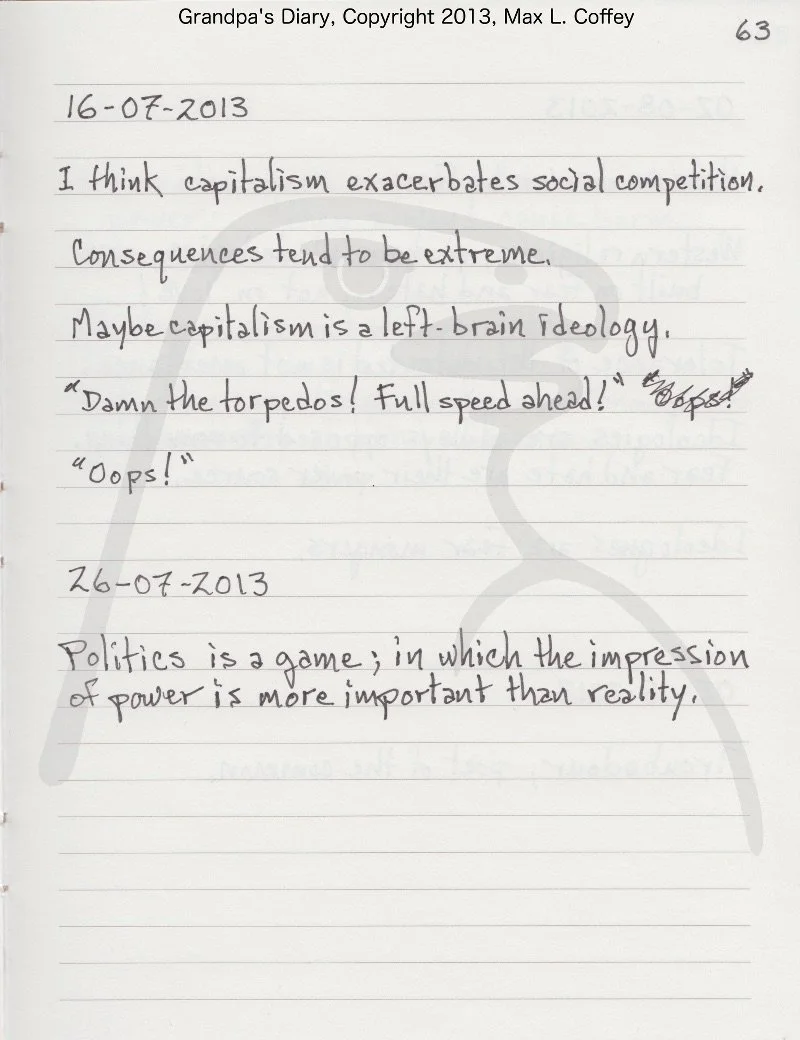 Grandpa's Diary, Copyright 2013, Max L. Coffey
63
16-07-2013
I think capitalism exacerbates social competition.
Consequences tend to be extreme.
Maybe capitalism is a left-brain ideology.
"Damn the torpedos! Full speed ahead!" "Oops!"
"Oops!"
26-07-2013
Politics is a game; in which the impression
of power is more important than reality.